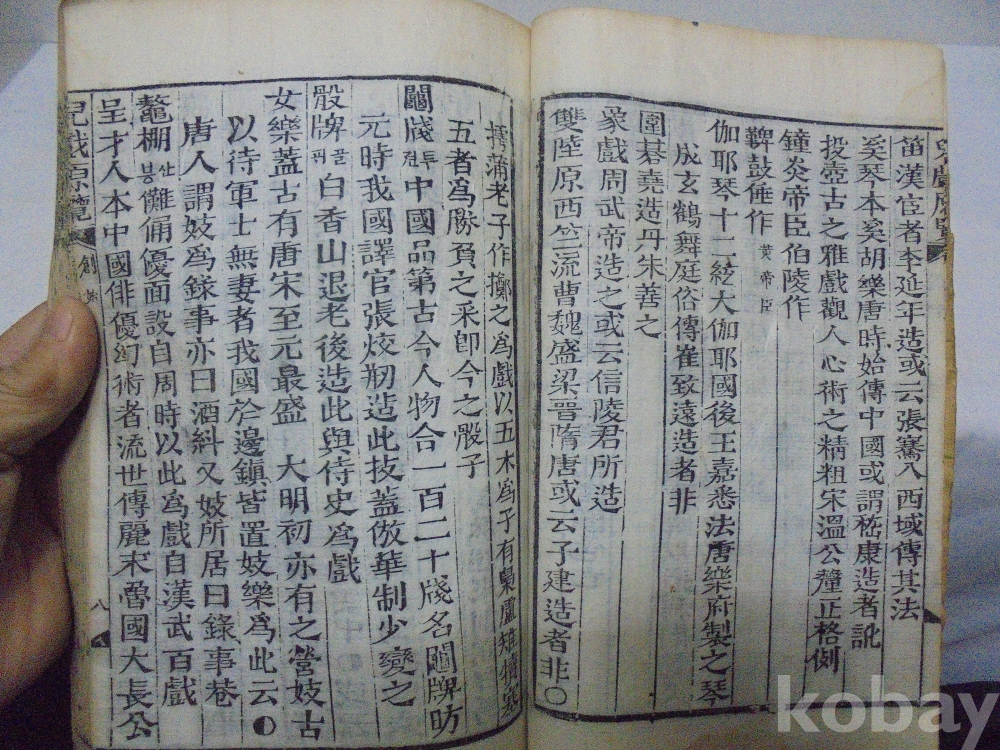 笛漢宦者李延年造或云張騫入西域傳其法
奚琴本奚胡樂唐時始傳中國或謂嵇康造者訛
投壺古之雅戲觀人心術之精粗宋溫公釐正格例
鐘炎帝臣伯陵作
鞞鼓倕作黃帝臣
伽耶琴十二絃大伽耶國後王嘉悉法唐樂府製之琴
成玄鶴舞庭俗傳崔致遠造者非
圍碁堯造丹朱善之
象戲周武帝造之或云信陵君所造
雙陸原西竺流曹魏盛梁晉隋唐或云子建造者非○
摴蒲老子作擲之爲戲以五木爲子有梟盧雉犢塞
五者爲勝負之采卽今之骰子
鬮牋투전中國品第古今人物合一百二十牋名鬮牌昉
元時我國譯官張炆刱造此技盖倣華制少變之
骰牌골패白香山退老後造此與侍史爲戲
女樂盖古有唐宋至元最盛 大明初亦有之營妓古
以待軍士無妻者我國於邊鎭皆置妓樂爲此云
唐人謂妓爲錄事亦曰酒糾又妓所居曰錄事巷
鼇棚산붕儺俑優面設自周時以此爲戲自漢武百戲
呈才人本中國俳優幻術者流世傳麗末魯國大長公
兒戲原覽
創
八
kobay